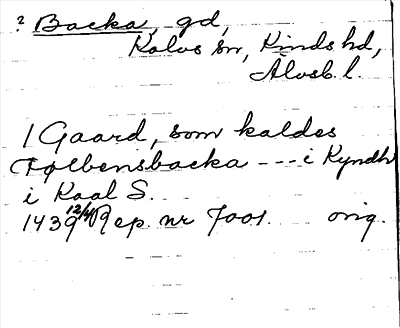 ? Backa, gd,
Kalvs sn, Kinds hd,
Älvsb. l.
1 Gaard, som kaldes
Torbensbacka --- i Kyndh
i Kaal S.
1439 12/4 Rep. nr 7001. orig.